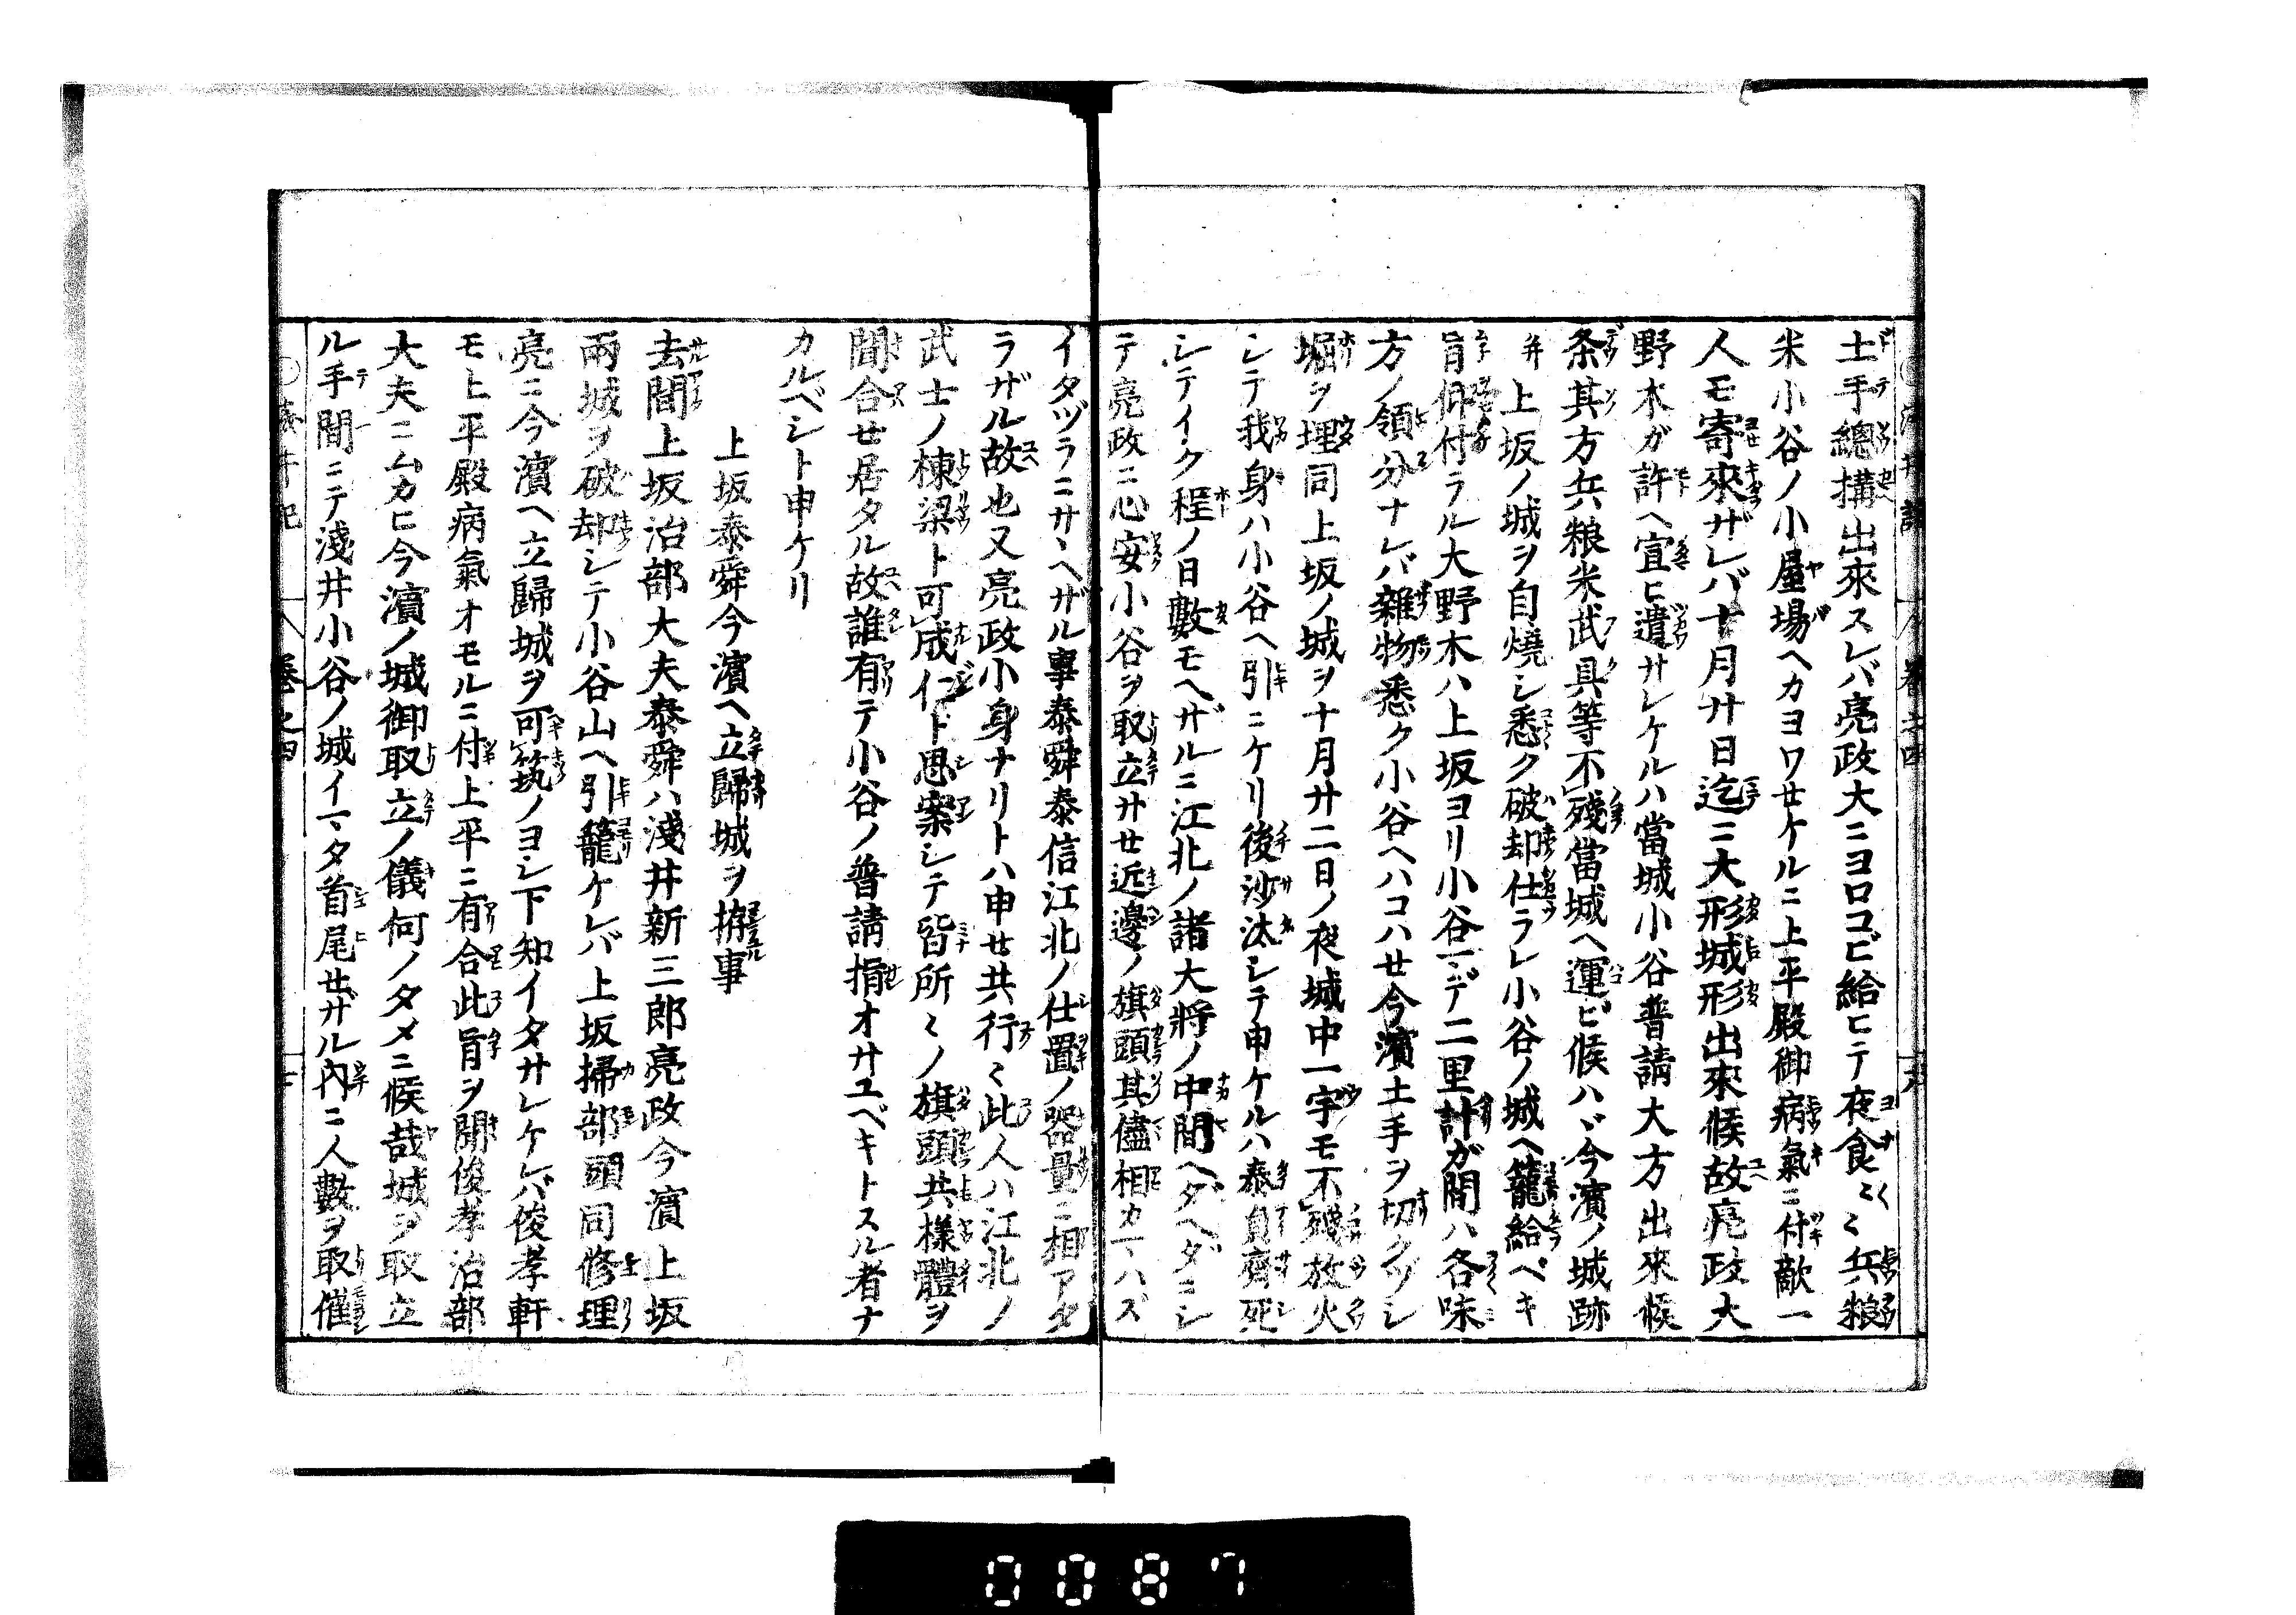 土手總搆出來スレバ亮政大ニヨロコビ給ヒテ夜食〻〻兵粮
米小谷ノ小屋場ヘカヨワせケルニ上平殿御病氣ニ付敵一
人モ寄來ザレバ十月廿日迄ニ大形城形出來候故亮政大
野木ガ許ヘ宣ヒ遣サレケルハ當城小谷普請大方出來候
条其方兵粮米武具等不殘當城ヘ運ビ候ハヾ今濱ノ城跡
并上坂ノ城ヲ自燒シ悉ク破却仕ラレ小谷ノ城ヘ籠給ベキ
旨仰付ラル大野木ハ上坂ヨリ小谷マデ二里計ガ間ハ各味
方ノ領分ナレバ雜物悉ク小谷ヘハコハせ今濱土手ヲ切クツシ
堀ヲ埋同上坂ノ城ヲ十月廿二日ノ夜城中一宇モ不殘放火
シテ我身ハ小谷ヘ引ニケリ後沙汰シテ申ケルハ泰貞齊死
シテイク程ノ日數モヘザルニ江北ノ諸大將ノ中間ヘダヘダニシ
テ亮政ニ心安小谷ヲ取立サせ近邊ノ旗頭其儘相カマハズ
イタヅラニサヽヘザル事泰舜泰信江北ノ仕置ノ器量ニ相アタ
ラザル故也又亮政小身ナリトハ申せ共行〻此人ハ江北ノ
武士ノ棟梁ト可成仁ト思案シテ皆所〻ノ旗頭共樣體ヲ
聞合せ居タル故誰有テ小谷ノ普請掯オサユベキトスル者ナ
カルベシト申ケリ
上坂泰舜今濱ヘ立歸城ヲ拵事
去間上坂治部大夫泰舜ハ淺井新三郎亮政今濱上坂
兩城ヲ破却シテ小谷山ヘ引籠ケレバ上坂掃部頭同修理
亮ニ今濱ヘ立歸城ヲ可築ノヨシ下知イタサレケレバ俊孝軒
モ上平殿病氣オモルニ付上平ニ有合此旨ヲ聞俊孝治部
大夫ニムカヒ今濱ノ城御取立ノ儀何ノタメニ候哉城ヲ取立
ル手間ニテ淺井小谷ノ城イマタ首尾せザル內ニ人數ヲ取催
卷之四
0087